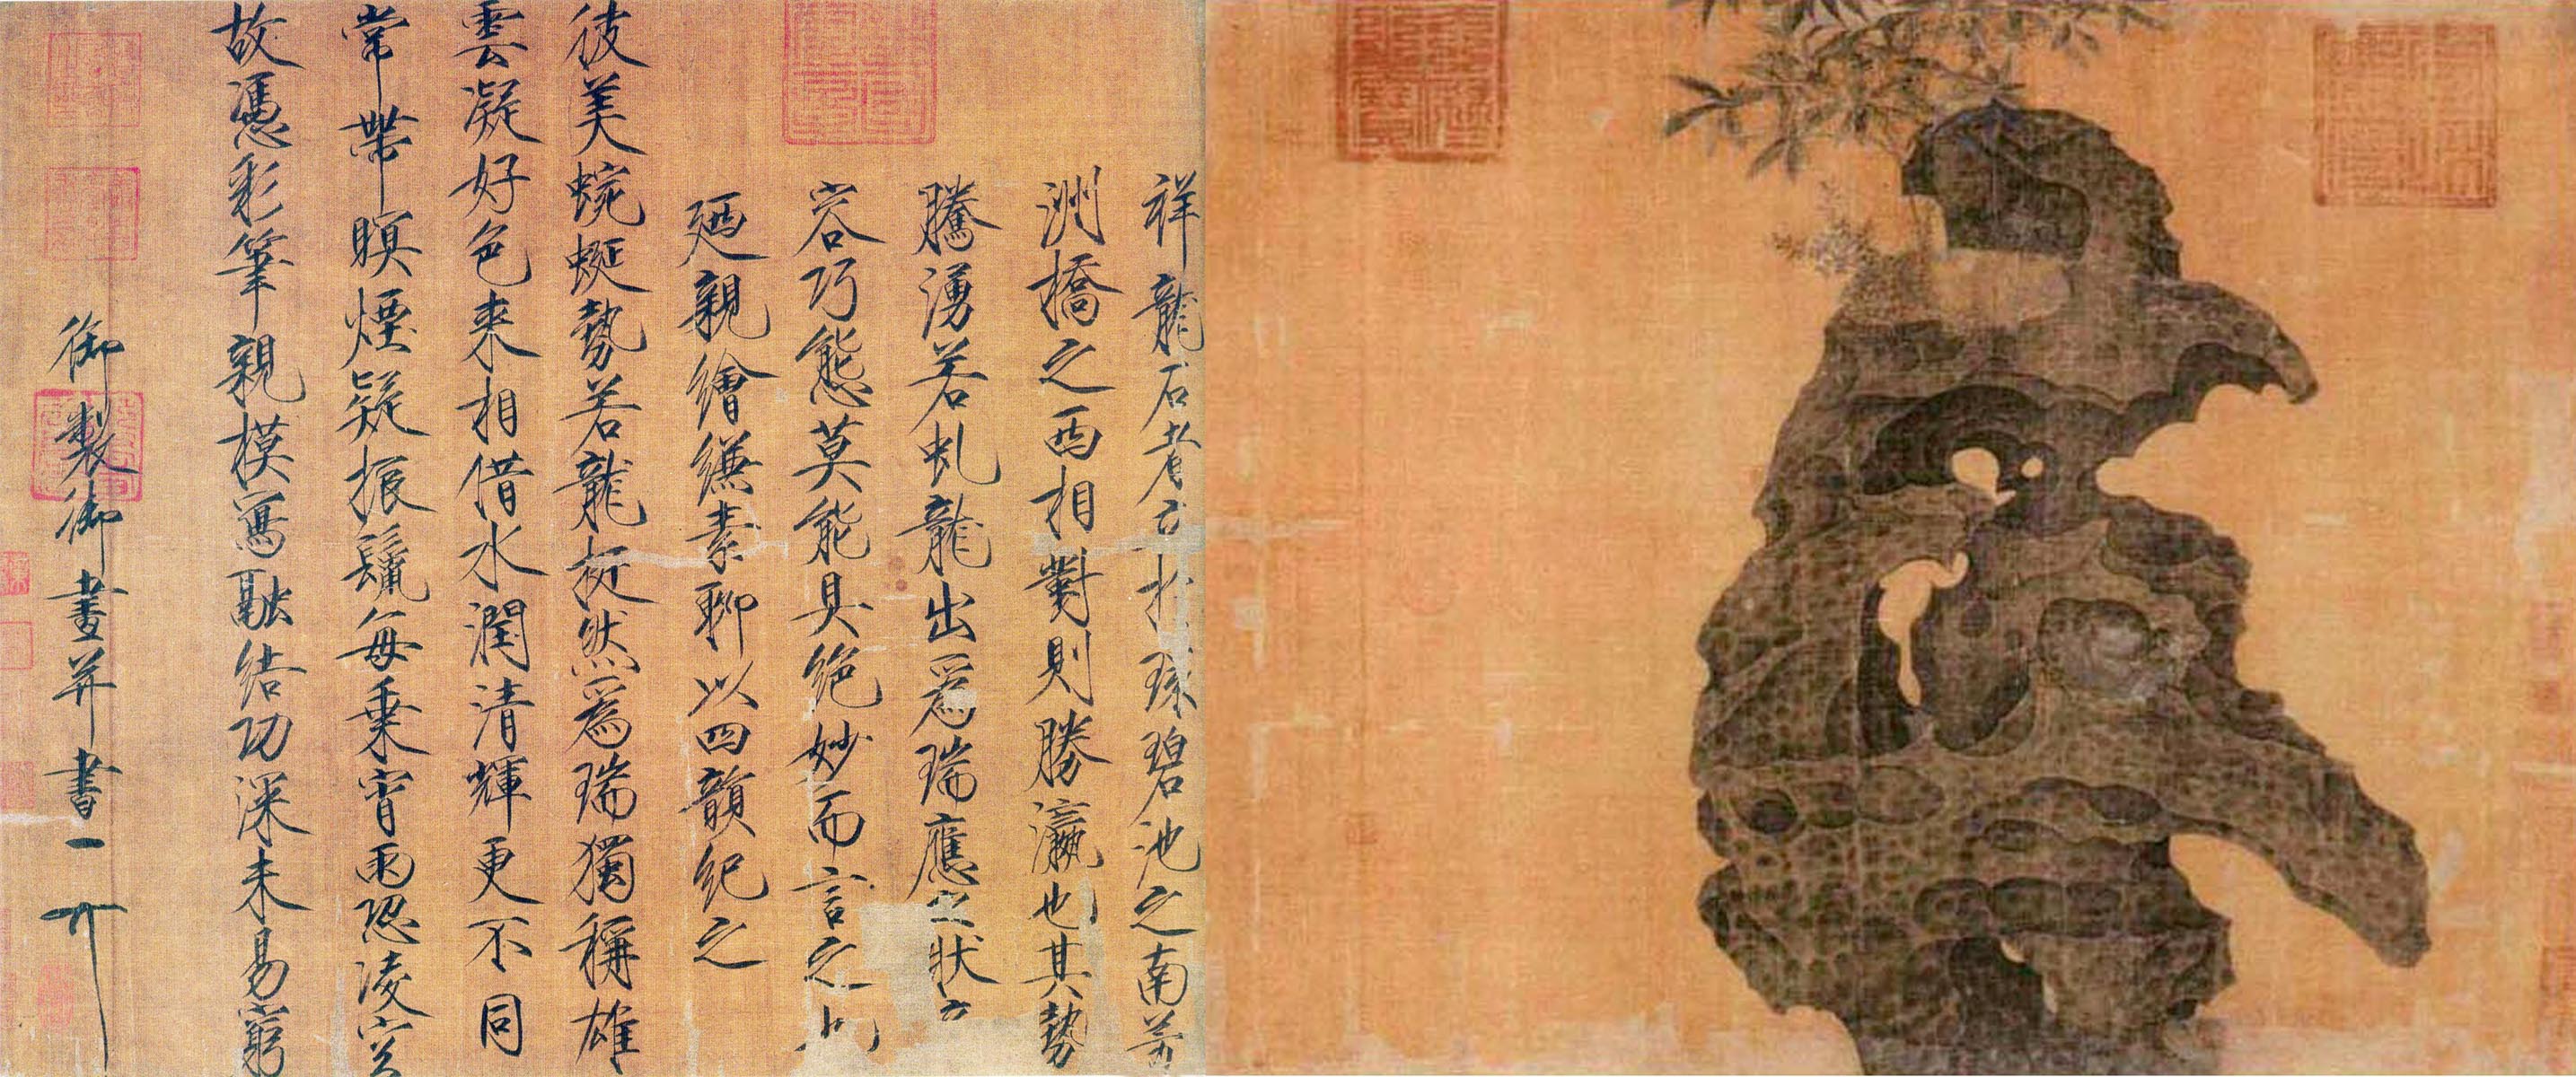 祥龍石者立於環碧池之南芳
洲橋之西相對則勝瀛也其勢
騰湧若虬龍出爲瑞應之狀奇
容巧態莫能具絶妙而言之也
廼親繪縑素聊以四韻紀之
彼美蜿蜒勢若龍挺然爲瑞獨稱雄
雲凝好色来相借水潤清輝更不同
常帶瞑煙疑振鬣每乗宵雨恐凌空
故憑彩筆親模寫融結功深未易窮
御製御畫并書